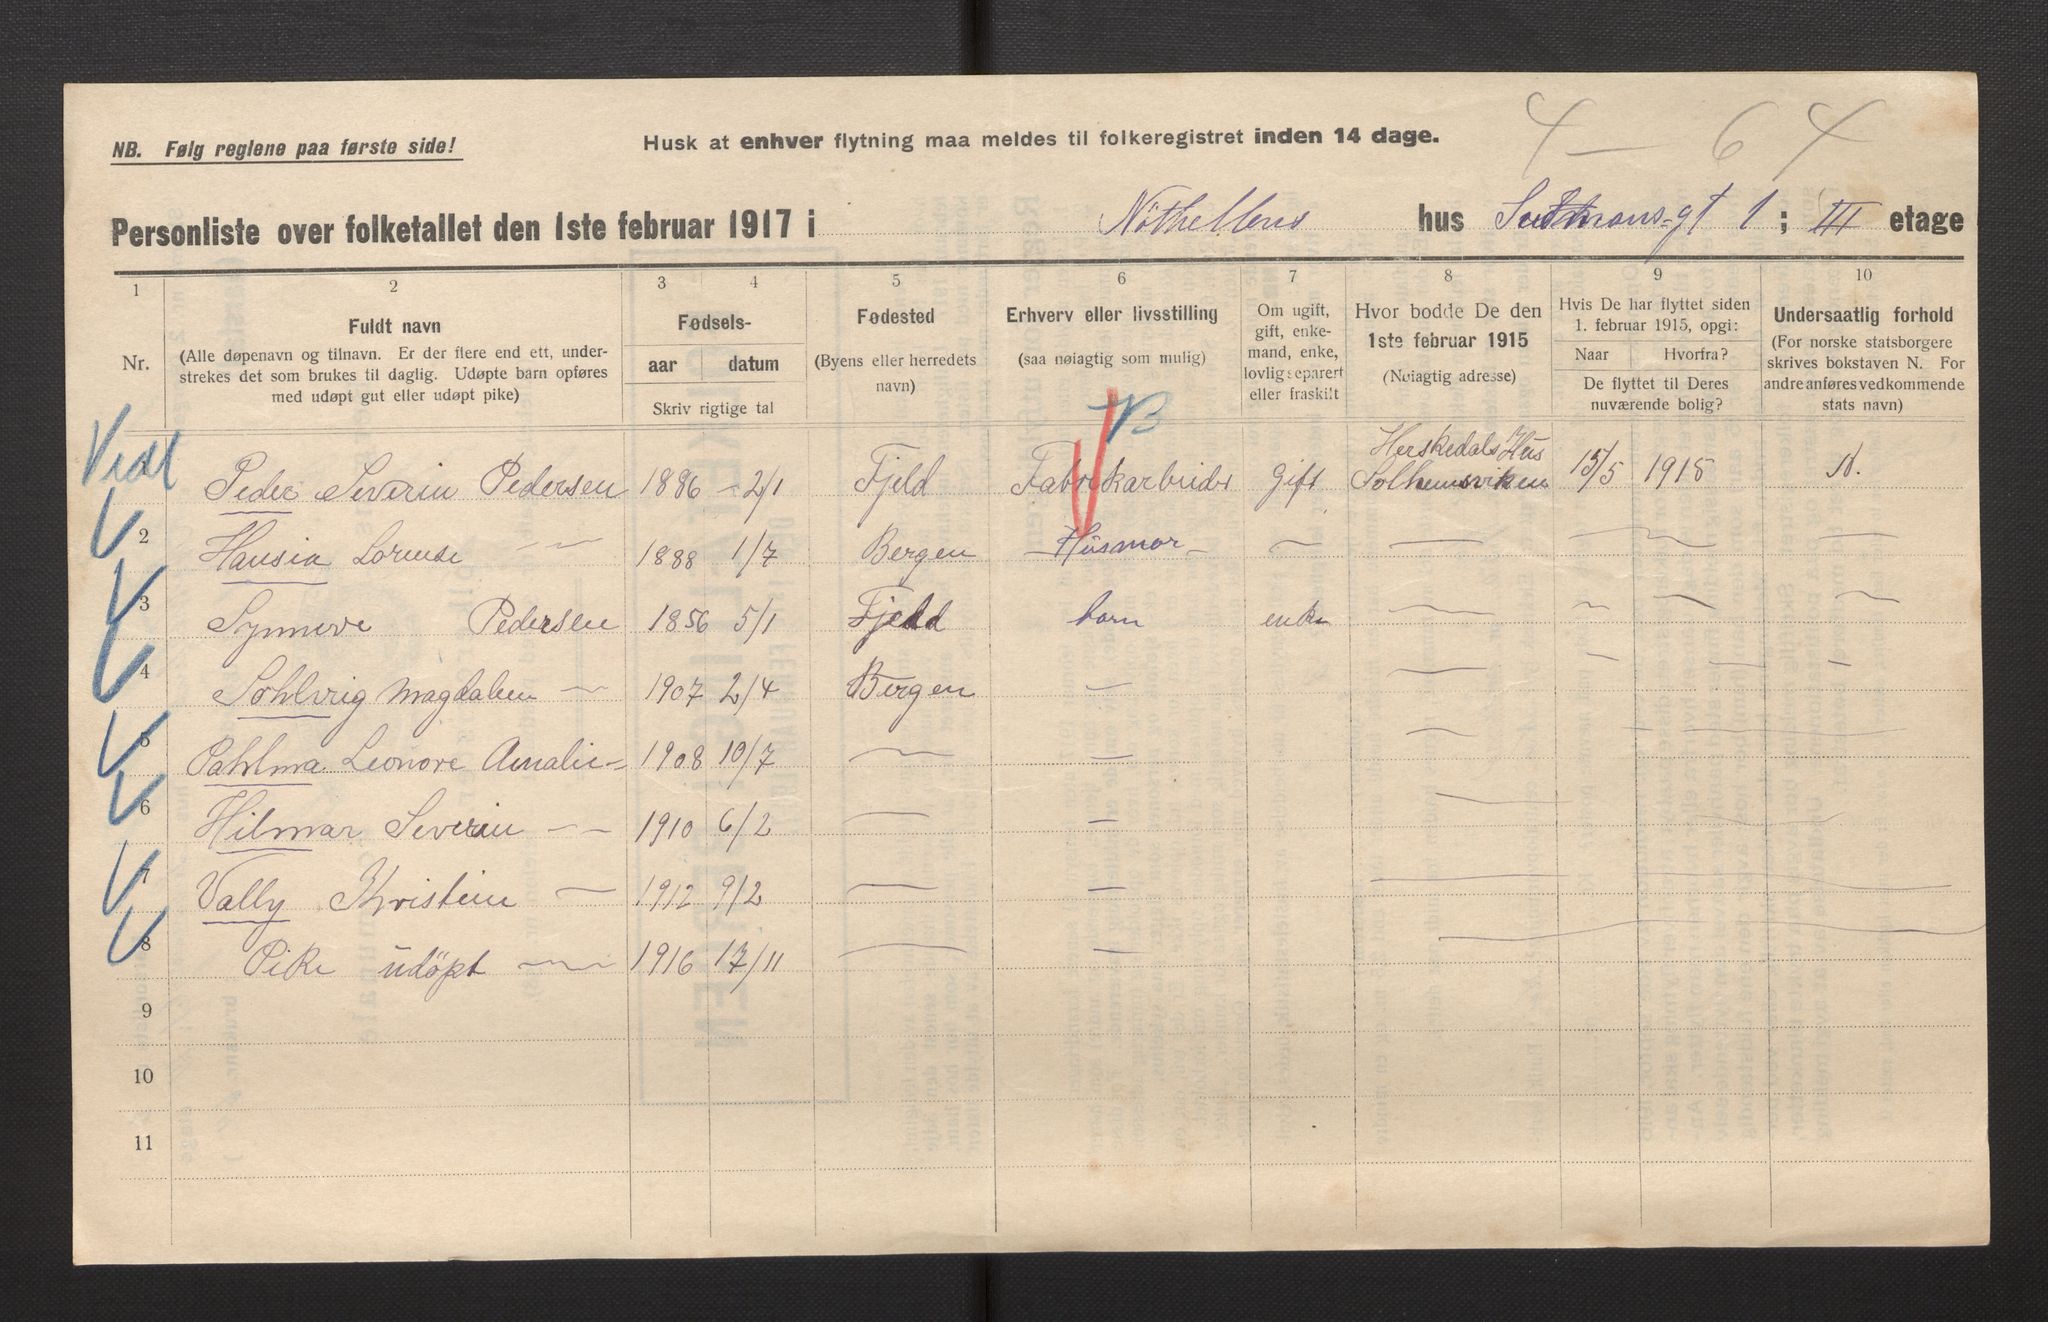 4 — 6 4
NB. Følg reglene paa første side!
Husk at enhver flytning maa meldes til folkeregistret inden 14 dage.
Personliste over folketallet den 1ste februar 1917 i hus gt 1 ; III etage
1 2 3 4 5 6 7 8 9 10
Nr.
Fuldt navn
(Alle døpenavn og tilnavn. Er der flere end ett, under-
strekes det som brukes til daglig. Udøpte barn opføres
med udøpt gut eller udøpt pike)
Fødsels-
aar datum
Skriv rigtige tal
Fødested
(Byens eller herredets
navn)
Erhverv eller livsstilling
(saa nøiagtig som mulig)
Om ugift,
gift, enke-
mand, enke,
lovlig separert
eller fraskilt
Hvor bodde De den
1ste februar 1915
(Nøiagtig adresse)
Hvis De har flyttet siden
1. februar 1915, opgi:
Naar Hvorfra?
De flyttet til Deres
nuværende bolig?
Undersaatlig forhold
(For norske statsborgere
skrives bokstaven N. For
andre anføres vedkommende
stats navn)
B
Peder Severin Pedersen 1886 – 2/1 Fjeld Fabrikarbeider gift Herskedals Hus Solheimsviken 15/5 1915 N.
2 Hansia Lorense — 1888 1/7 Bergen Husmor — — — — —
3 Synneve Pedersen 1856 5/1 Fjeld barn enke — — — —
4 Sohlvrig Magdalen — 1907 2/4 Bergen — — — — —
5 Pahlma Leonore Amalie – 1908 10/7 — — — —
6 Hilmar Severin — 1910 6/2 — — — —
7 Vally Kristein — 1912 9/2 — — — —
8 Pike udöpt — 1916 17/11 — — —
9
10
11